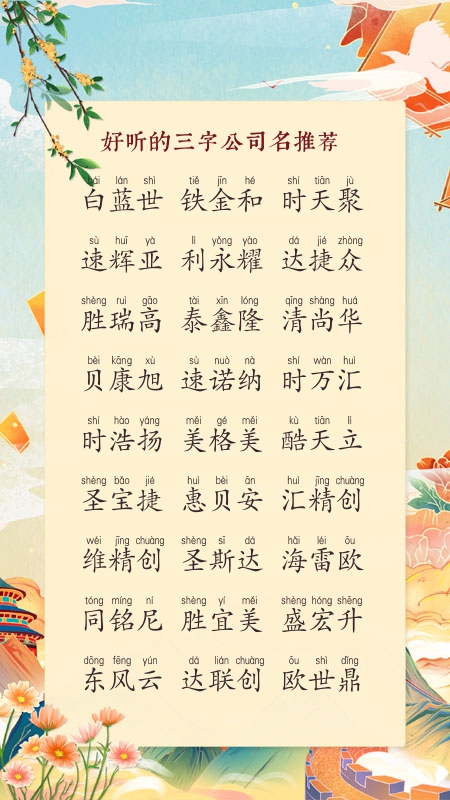 好听的三字公司名推荐
bái lán shì tiě jīn hé shí tiān jù
白蓝世 铁金和 时天聚
sù huī yà lì yǒng yào dá jié zhòng
速辉亚 利永耀 达捷众
shèng ruì gāo tài xīn lóng qīng shàng huá
胜瑞高 泰鑫隆 清尚华
bèi kāng xù sù nuò nà shí wàn huì
贝康旭 速诺纳 时万汇
shí hào yáng měi gé měi kù tiān lì
时浩扬 美格美 酷天立
shèng bǎo jié huì bèi ān huì jīng chuàng
圣宝捷 惠贝安 汇精创
wéi jīng chuàng shèng sī dá hǎi léi ōu
维精创 圣斯达 海雷欧
tóng míng ní shèng yí měi shèng hóng shēng
同铭尼 胜宜美 盛宏升
dōng fēng yún dá lián chuàng ōu shì dǐng
东风云 达联创 欧世鼎